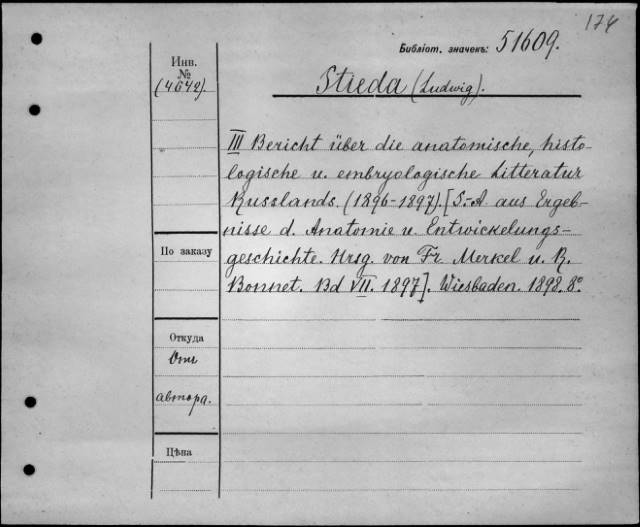 174
Библіот. значекъ: 51609.
Инв.
№
(4642).
Stieda (Ludwig).
III Bericht über die anatomische, histo-
logische u. embryologische Litteratur
Russlands. (1896-1897). [S.-A. aus Ergeb-
nisse d. Anatomie u. Entwickelungs-
geschichte. Hrsg. von Fr. Merkel u. R.
Bonnet. Bd VII. 1897]. Wiesbaden. 1898. 8º
По заказу
Откуда
Отъ
автора.
Цѣна